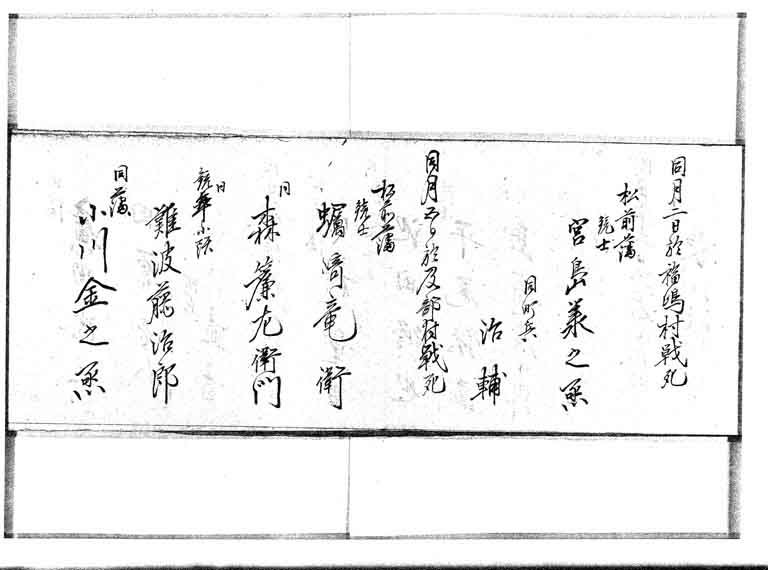 同月二日於福嶋村戦死
松前藩
銃士
宮島義之丞
同町兵
治輔
同月五日於及部村戦死
松前藩
銃士
蠣崎竜衛
同
森簾左衛門
同
銃卒小隊
難波藤治郎
同藩
小川金之丞